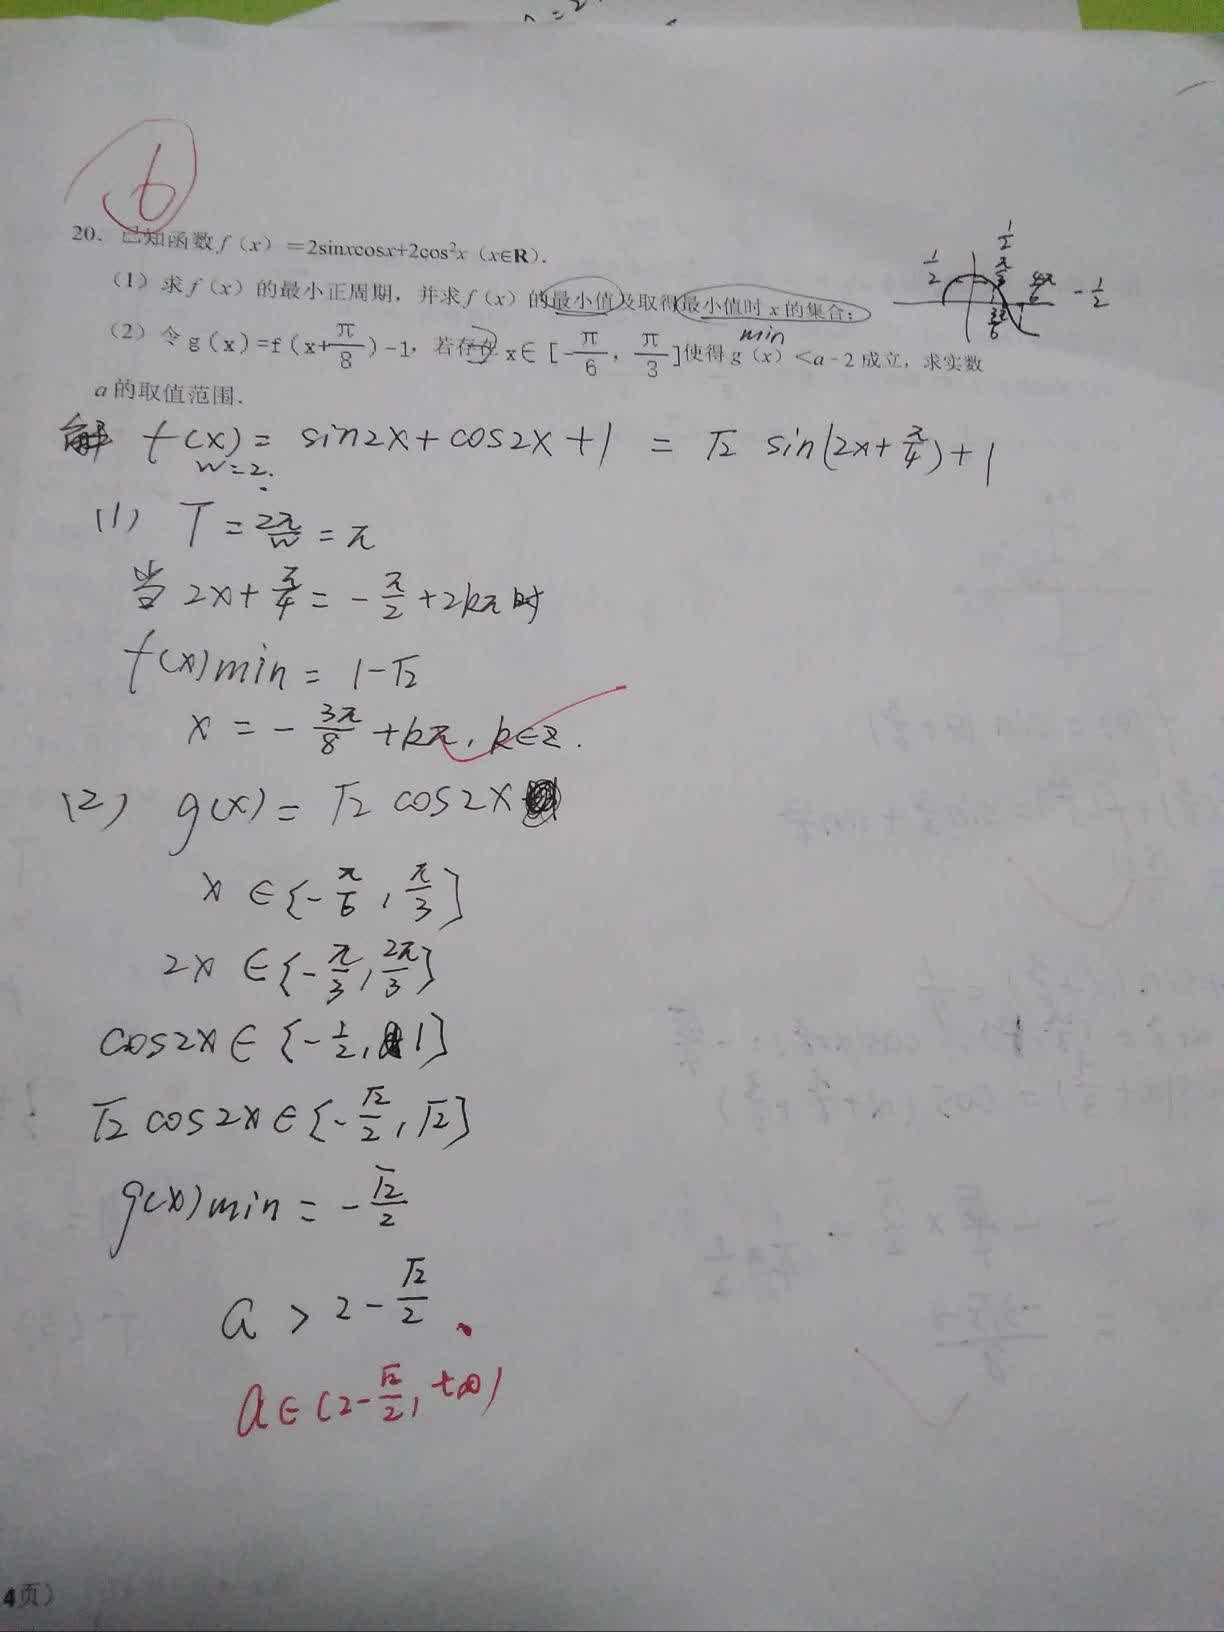 6
20. 已知函数 f（x）＝2sinxcosx+2cos²x（x∈R）.
（1）求 f（x）的最小正周期，并求 f（x）的最小值及取得最小值时 x 的集合；
min
（2）令 g（x）=f（x+π/8）-1，若存在 x∈[-π/6，π/3]使得 g（x）<a-2 成立，求实数
a 的取值范围.
1/2 1/2 π/3 -1/2
解 f(x) = sin2x + cos2x + 1 = √2 sin(2x+π/4)+1
w=2.
(1) T = 2π/w = π
当 2x+π/4 = -π/2 +2kπ时
f(x)min = 1-√2
x = -3π/8 +kπ, k∈Z.
(2) g(x) = √2 cos2x
x ∈ [-π/6, π/3]
2x ∈ [-π/3, 2π/3]
cos2x ∈ [-1/2, 1]
√2 cos2x ∈ [-√2/2, √2]
g(x)min = -√2/2
a > 2-√2/2
a∈(2-√2/2, +∞)
4页）